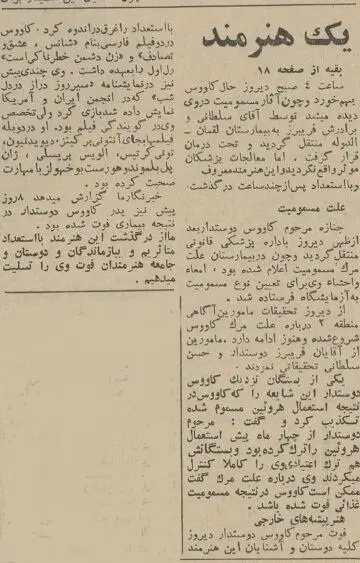 یک هنرمند
بقیه از صفحه ۱۸
ساعت ۴ صبح دیروز حال کاووس
بهم خورد و چون آثار مسمومیت در وی
دیده میشد توسط آقای سلطانی و
برادرش فریبرز به بیمارستان لقمان –
الدوله منتقل گردید و تحت درمان
قرار گرفت . اما معالجات پزشکان
موثر واقع نگردید و این هنرمند معروف
و بااستعداد پس از چند ساعت در گذشت
علت مسمومیت
جنازه مرحوم کاووس دوستدار بعد
از ظهر دیروز باداره پزشکی قانونی
منتقل گردید و چون در بیمارستان علت
مرگ مسمومیت اعلام شده بود ، امعاء
واحشاء وی برای تعیین نوع مسمومیت
به آزمایشگاه فرستاده شد .
از دیروز تحقیقات مامورین آگاهی
منطقه ۲ درباره علت مرگ کاووس
شروع شده و هنوز ادامه دارد . مامورین
از آقایان فریبرز دوستدار و حسن
سلطانی تحقیقاتی نمودند .
یکی از بستگان نزدیک کاووس
دوستدار این شایعه را که کاووس در
نتیجه استعمال هروئین مسموم شده
تکذیب کرد و گفت : مرحوم
دوستدار از چهار ماه پیش استعمال
هروئین را ترک کرده بود و بستگانش
هم ترک اعتیاد وی را کاملا کنترل
میکردند وی درباره علت مرگ گفت
ممکن است کاووس در نتیجه مسمومیت
غذائی فوت شده باشد .
هنرپیشه‌های خارجی
فوت مرحوم کاووس دوستدار دیروز
کلیه دوستان و آشنایان این هنرمند
بااستعداد را غرق در اندوه کرد . کاووس
در دو فیلم فارسی بنام «شانس ، عشق و
تصادف» و «زن دشمن خطرناکی است»
رل اول را بعهده داشت . وی چندی پیش
نیز در نمایشنامه «سیر روز دراز در دل
شب» که در انجمن ایران و آمریکا
نمایش داده شد بازی کرد ولی تخصص
وی در گویندگی فیلم بود . او در دوبله
فیلمها بجای آنتونی پرکینز ، دیوید نیون،
تونی کرتیس، الویس پریسلی ، ژان
پل بلموندو هورست بوخهلز با مهارت
صحبت کرده بود .
خبرنگار ما گزارش میدهد ۸ روز
پیش نیز پدر کاووس دوستدار در
نتیجه بیماری فوت شده بود .
ما از درگذشت این هنرمند بااستعداد
متاثریم و ببازماندگان و دوستان و
جامعه هنرمندان فوت وی را تسلیت
میدهیم .